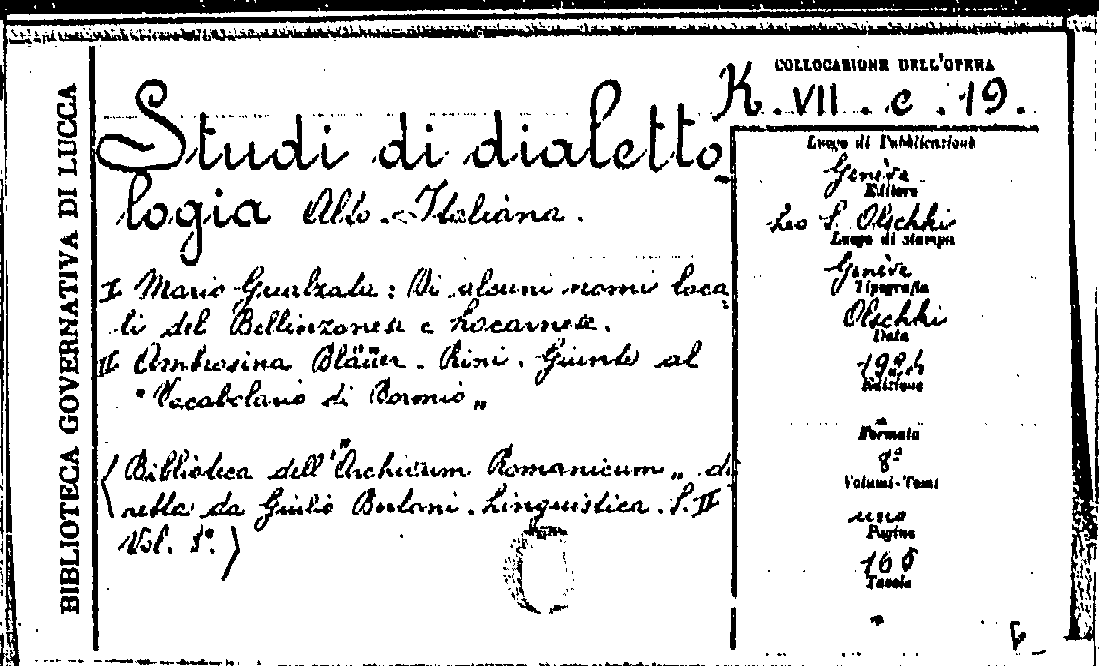 BIBLIOTECA GOVERNATIVA DI LUCCA
COLLOCAZIONE DELL'OPERA
K. VII. c. 19.
Studi di dialetto
logia Alto-Italiana.
I Mario Gualzata: Di alcuni nomi loca
li del Bellinzonese e Locarnese.
II Ambrosina Bläuer-Rini. Giunte al
"Vocabolario di Bormio"
(Biblioteca dell'"Archivum Romanicum" di
retta da Giulio Bertoni. Linguistica. S. II
Vol.
Luogo di Pubblicazione
Genève
Editore
Leo S. Olschki
Luogo di stampa
Genève
Tipografia
Olschki
Data
1924
Edizione
Formato
8º
Volumi-Tomi
uno
Pagine
Tavole